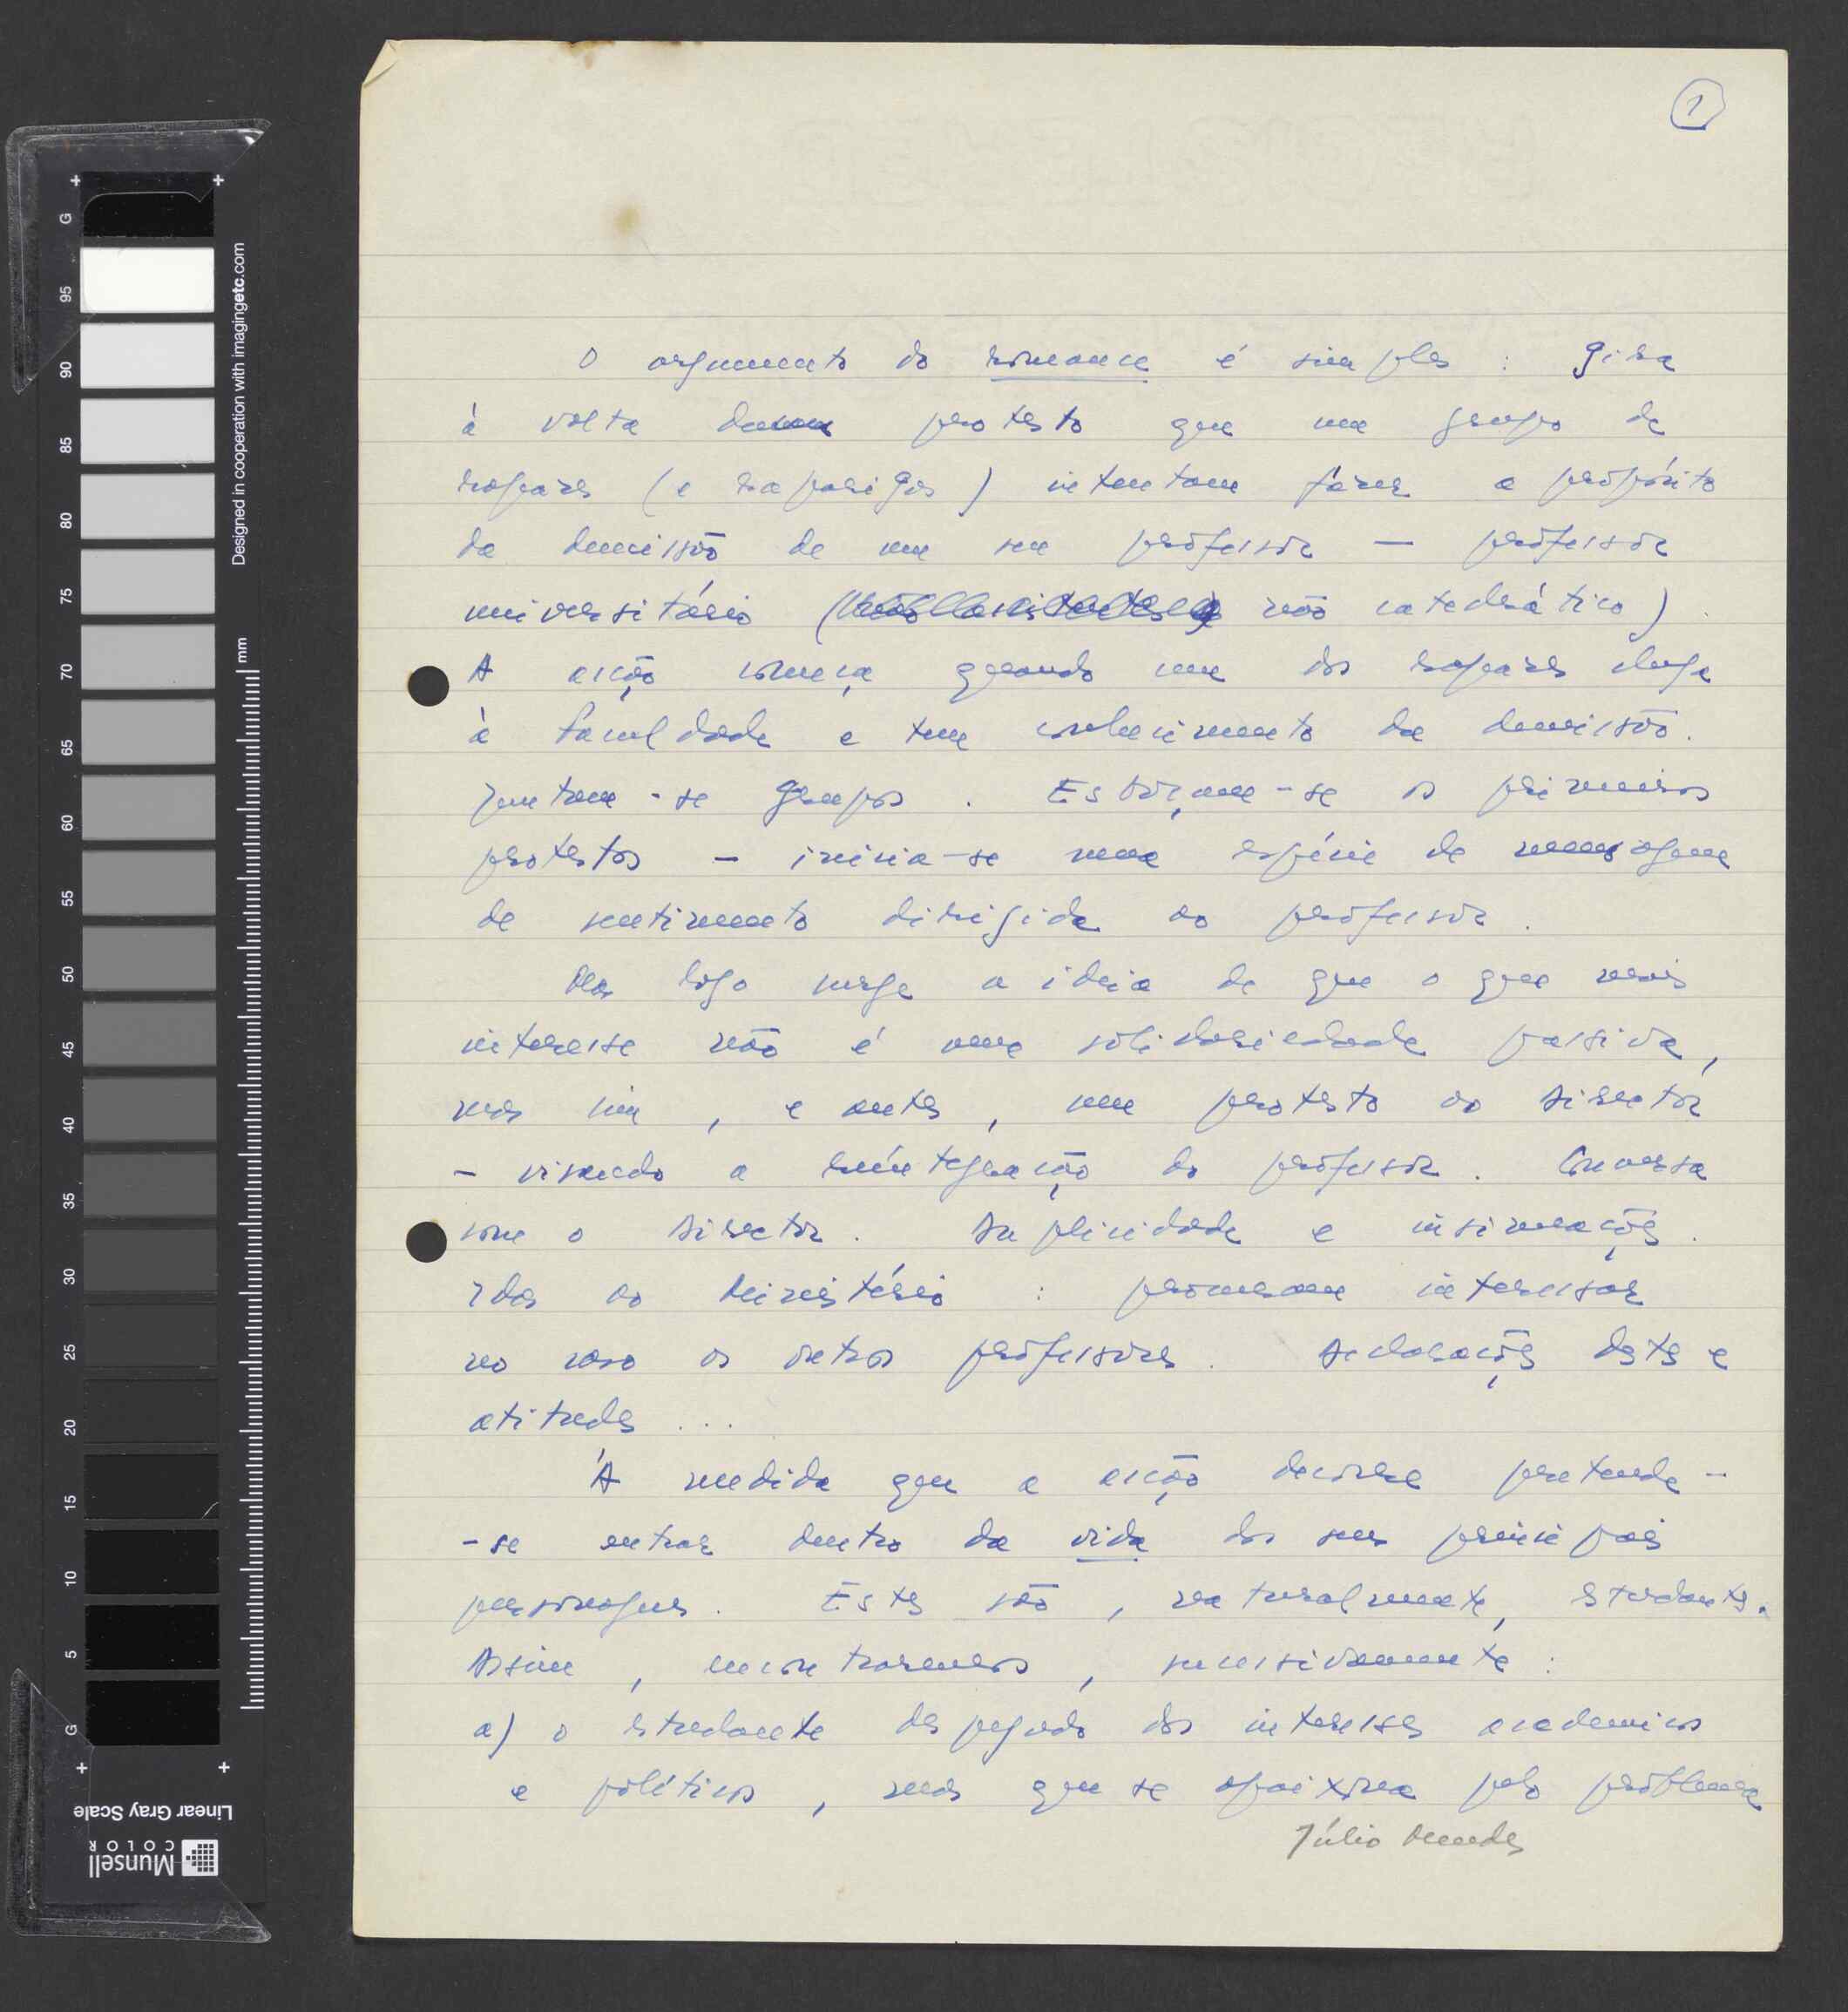 1
O argumento do romance é simples : gira
à volta dum protesto que um grupo de
rapazes (e raparigas) intentam fazer a propósito
da demissão de um seu professor — professor
universitário ( não catedrático) .
A acção começa quando um dos rapazes chega
à Faculdade e tem conhecimento da demissão.
Juntam-se grupos . Esboçam-se os primeiros
protestos — inicia-se uma espécie de mensagem
de sentimento dirigida ao professor .
Mas logo surge a ideia de que o que mais
interessa não é uma solidariedade passiva,
mas sim , e antes , um protesto ao Director
— visando a reintegração do professor . Conversa
com o Director . Duplicidade e insinuações .
Idas ao Ministério : procuram interessar
no caso os outros professores . Declarações destes e
atitudes ...
À medida que a acção decorre pretende-
-se entrar dentro da vida dos seus principais
personagens . Estes são , naturalmente, estudantes.
Assim , encontraremos , sucessivamente :
a) o estudante despegado dos interesses academicos
e políticos , mas que se apaixona pelo problema
Júlio Mendes
G
95
90
85
80
75
70
65
60
55
50
45
40
35
30
25
20
15
10
5
G
mm
Designed in cooperation with imagingetc.com
Linear Gray Scale
Munsell
COLOR